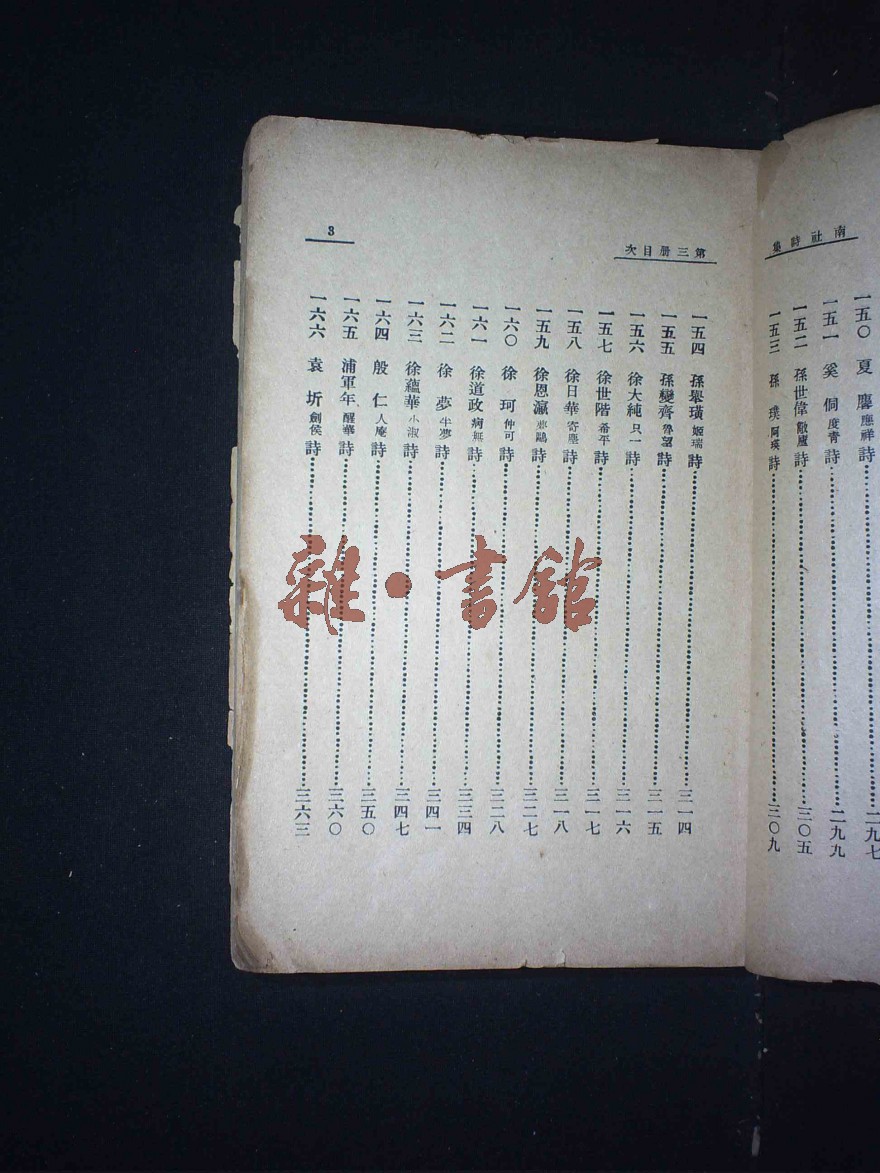 南社詩集
一五〇 夏麐應祥詩……二九七
一五一 奚侗度青詩……二九九
一五二 孫世偉敵廬詩……三〇五
一五三 孫璞阿瑛詩……三〇九
第三册目次
3
一五四 孫舉璜姬瑞詩……三一四
一五五 孫變齊魯望詩……三一五
一五六 徐大純只一詩……三一六
一五七 徐世階希平詩……三一七
一五八 徐日華寄塵詩……三一八
一五九 徐恩瀛夢鷗詩……三二七
一六〇 徐珂仲可詩……三二八
一六一 徐道政病無詩……三三四
一六二 徐夢半夢詩……三四一
一六三 徐蘊華小淑詩……三四七
一六四 殷仁人庵詩……三五〇
一六五 浦軍年醒華詩……三六〇
一六六 袁圻劍侯詩……三六三
雜·書館